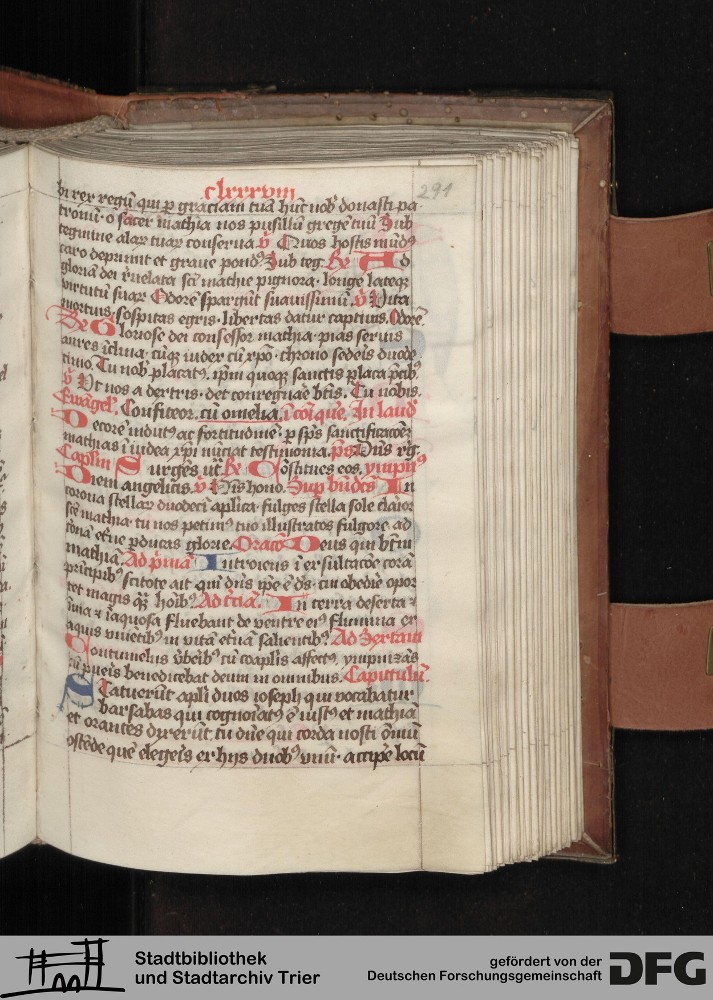 clxxxviii
291
bi rex regū qui p graciam tuā hūc nob donasti pa
tronū · o sacer mathia nos pusillū gregē tuū Sub
tegmine alaꝝ tuaꝝ conserua ℣ Quos hostis mūdꝰ
caro deprimit et graue pondꝰ Sub teg. Rx Ad
gloriā dei reuelata sci mathie pignora · longe lateqꝫ
virtutū suaꝝ Odorē spargūt suauissimū. ℣ Vita
mortuis, sospitas egris · libertas datur captiuis. Odorē.
Be Gloriose dei confessor mathia · pias seruis
aures īclina · cūqꝫ iudex cū xpo · throno sedeis duode
cimo. Tu nob placatꝰ. ipm quoqꝫ sanctis placa pcibꝰ
℣ Vt nos a dextris · det congregare btis. Tu nobis.
Ewāgel. Confiteor. cū omelia, ī coīque, In laud
Decorē indutꝰ ac fortitudinē · p spūs sanctificacoēꝫ
mathias ī iudea xpi nūciat testimonia. ps Dns reg.
Caplm Surgēs ut. Rx Cōstitues eos. ympnꝰ
Diem angelicis. ℣ Nis hono. Sup būdcs In
corona stellaꝝ duodecī aplica · fulges stella sole clarior
scē mathia · tu nos petimꝰ tuo illustratos fulgore ad
dona etne pducas glorie. Oracō Deus qui btm
mathiā. Ad primā Introiens ī exsultacōe corā
pricipibꝰ scitote ait qui dns ipe ē ds · cui obedire opor
tet magis qꝫ hoībꝰ Ad tciā. In terra deserta ⁊
inuia ⁊ īaquosa fluebant de ventre eiꝰ flumina ex
aquis viuētibꝰ in vitā etnā salientibꝰ Ad Sextam
Contumelus vbēibꝰ cū coaplis affectꝰ, ympnizās
cū pueis benedicebat deum in omnibus. Capitulū.
Statuerūt apli duos ioseph qui vocabatur
barsabas qui cognoīatꝰ ē iustꝰ et mathiā
et orantes dixerūt, tu dne qui corda nosti omniū
ostēde quē elegeīs ex hijs duobꝰ vnū · accipe locū
Stadtbibliothek
und Stadtarchiv Trier
gefördert von der
Deutschen Forschungsgemeinschaft
DFG